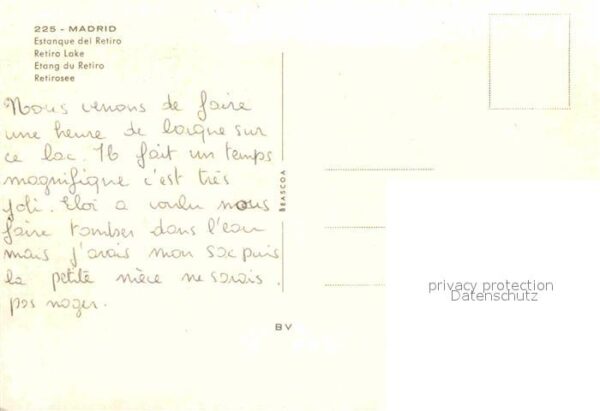 225 - MADRID
Estanque del Retiro
Retiro Lake
Etang du Retiro
Retirosee
Nous venons de faire
une heure de barque sur
ce lac. Il fait un temps
magnifique c'est très
joli. Eloi a voulu nous
faire tomber dans l'eau
mais j'avais mon sac puis
la petite nièce ne savais
pas nager.
BEASCOA
BV
privacy protection
Datenschutz